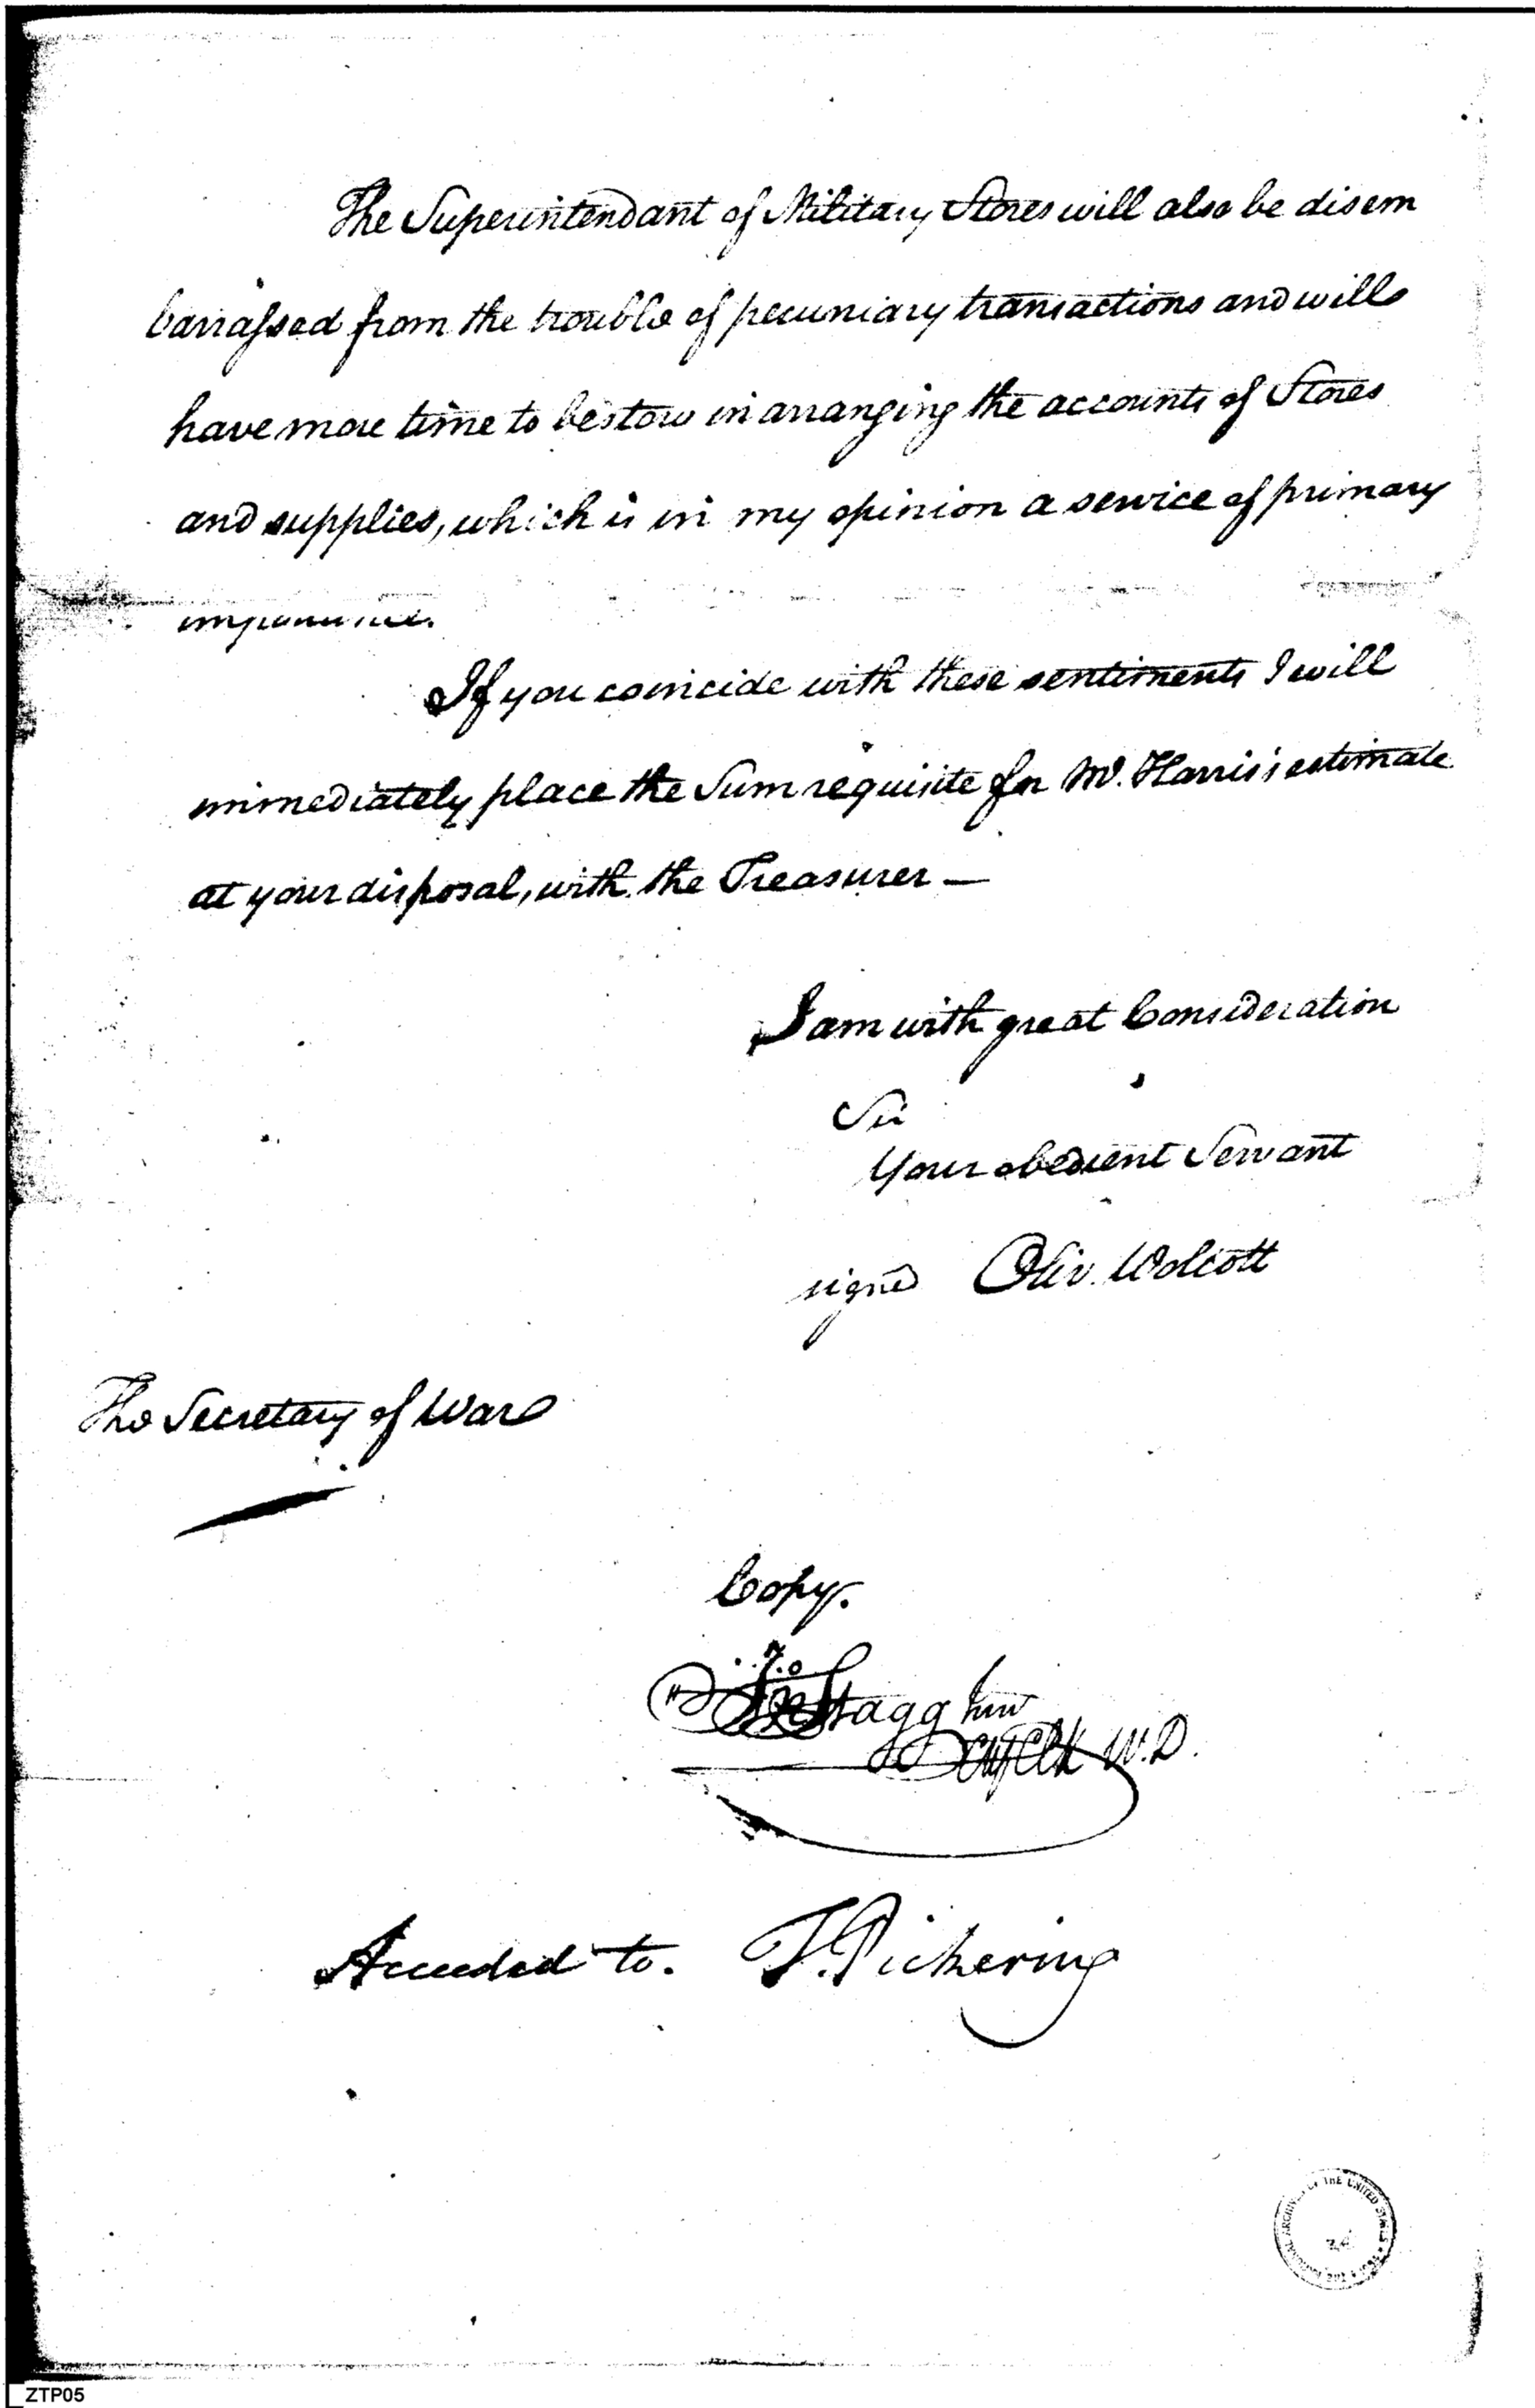 The Superintendant of Military Stores will also be disem
barrassed from the trouble of pecuniary transactions and will
have more time to bestow in arranging the accounts of Stores
and supplies, which is in my opinion a service of primary
importance.
If you coincide with these sentiments I will
immediately place the Sum requisite for Mr. Harris's estimate
at your disposal, with the Treasurer —
I am with great Consideration
Sir
Your obedient Servant
signed Oliv. Wolcott
The Secretary of War
Copy.
Jno Stagg Junr
Chf Clk W.D.
Acceded to. T. Pickering
ARCHIVES OF THE UNITED STATES
ZTP05